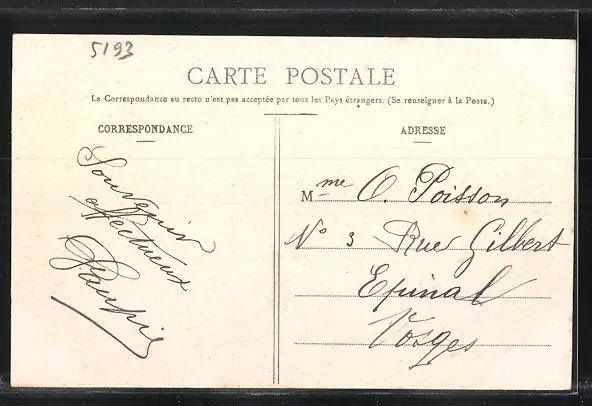 5193
CARTE POSTALE
La Correspondance au recto n'est pas acceptée par tous les Pays étrangers. (Se renseigner à la Poste.)
CORRESPONDANCE
Souvenir
affectueux
ADRESSE
Mme O. Poisson
No 3 Rue Gilbert
Epinal
Vosges